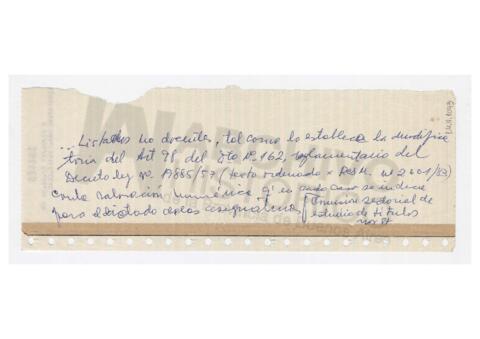 ... Listados no docentes, tal como lo establece la modifica
toria del Art 98 del Dto Nº 162, reglamentario del
Decreto ley Nº 19885/57 (texto ordenado x Res M. Nº 2601/83)
con la valoración numérica q' en cada caso se indica
para el dictado de las asignaturas
Comisión sectorial de
estudio de títulos